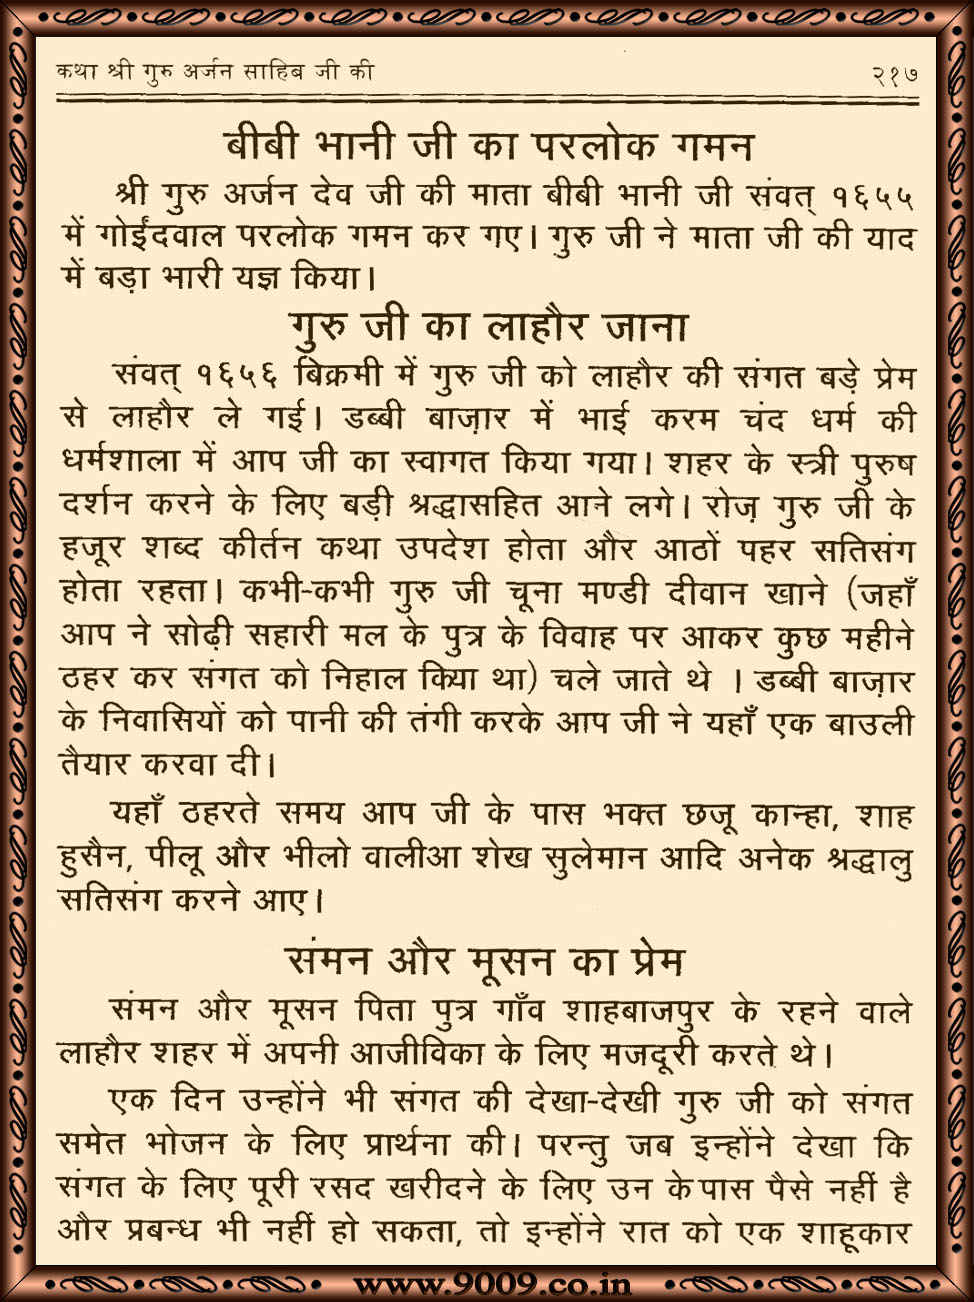 कथा श्री गुरु अर्जन साहिब जी की २१७
बीबी भानी जी का परलोक गमन
श्री गुरु अर्जन देव जी की माता बीबी भानी जी संवत् १६५५
में गोईंदवाल परलोक गमन कर गए। गुरु जी ने माता जी की याद
में बड़ा भारी यज्ञ किया।
गुरु जी का लाहौर जाना
संवत् १६५६ बिक्रमी में गुरु जी को लाहौर की संगत बड़े प्रेम
से लाहौर ले गई। डब्बी बाज़ार में भाई करम चंद धर्म की
धर्मशाला में आप जी का स्वागत किया गया। शहर के स्त्री पुरुष
दर्शन करने के लिए बड़ी श्रद्धासहित आने लगे। रोज़ गुरु जी के
हजूर शब्द कीर्तन कथा उपदेश होता और आठों पहर सतिसंग
होता रहता। कभी-कभी गुरु जी चूना मण्डी दीवान खाने (जहाँ
आप ने सोढ़ी सहारी मल के पुत्र के विवाह पर आकर कुछ महीने
ठहर कर संगत को निहाल किया था) चले जाते थे । डब्बी बाज़ार
के निवासियों को पानी की तंगी करके आप जी ने यहाँ एक बाउली
तैयार करवा दी।
यहाँ ठहरते समय आप जी के पास भक्त छजू कान्हा, शाह
हुसैन, पीलू और भीलो वालीआ शेख सुलेमान आदि अनेक श्रद्धालु
सतिसंग करने आए।
संमन और मूसन का प्रेम
संमन और मूसन पिता पुत्र गाँव शाहबाजपुर के रहने वाले
लाहौर शहर में अपनी आजीविका के लिए मजदूरी करते थे।
एक दिन उन्होंने भी संगत की देखा-देखी गुरु जी को संगत
समेत भोजन के लिए प्रार्थना की। परन्तु जब इन्होंने देखा कि
संगत के लिए पूरी रसद खरीदने के लिए उन के पास पैसे नहीं है
और प्रबन्ध भी नहीं हो सकता, तो इन्होंने रात को एक शाहूकार
www.9009.co.in